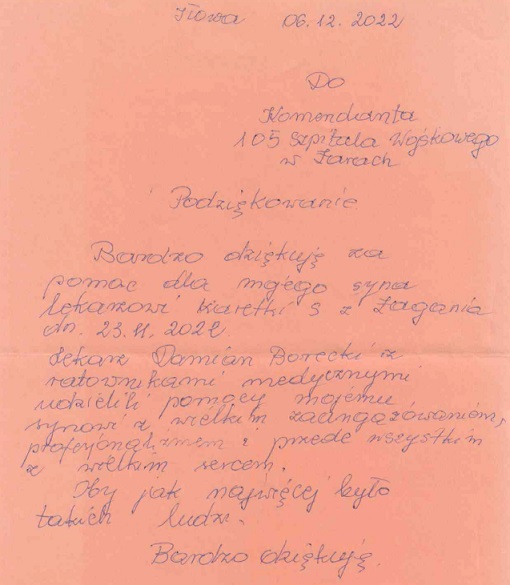 Iłowa 06.12.2022
Do
Komendanta
105 Szpitala Wojskowego
w Żarach
Podziękowanie
Bardzo dziękuję za
pomoc dla mojego syna
lekarzowi karetki S z Żagania
dn. 23.11.2022
Lekarz Damian Borecki z
ratownikami medycznymi
udzielili pomocy mojemu
synowi z wielkim zaangażowaniem,
profesjonalizmem i przede wszystkim
z wielkim sercem.
Aby jak najwięcej było
takich ludzi.
Bardzo dziękuję.